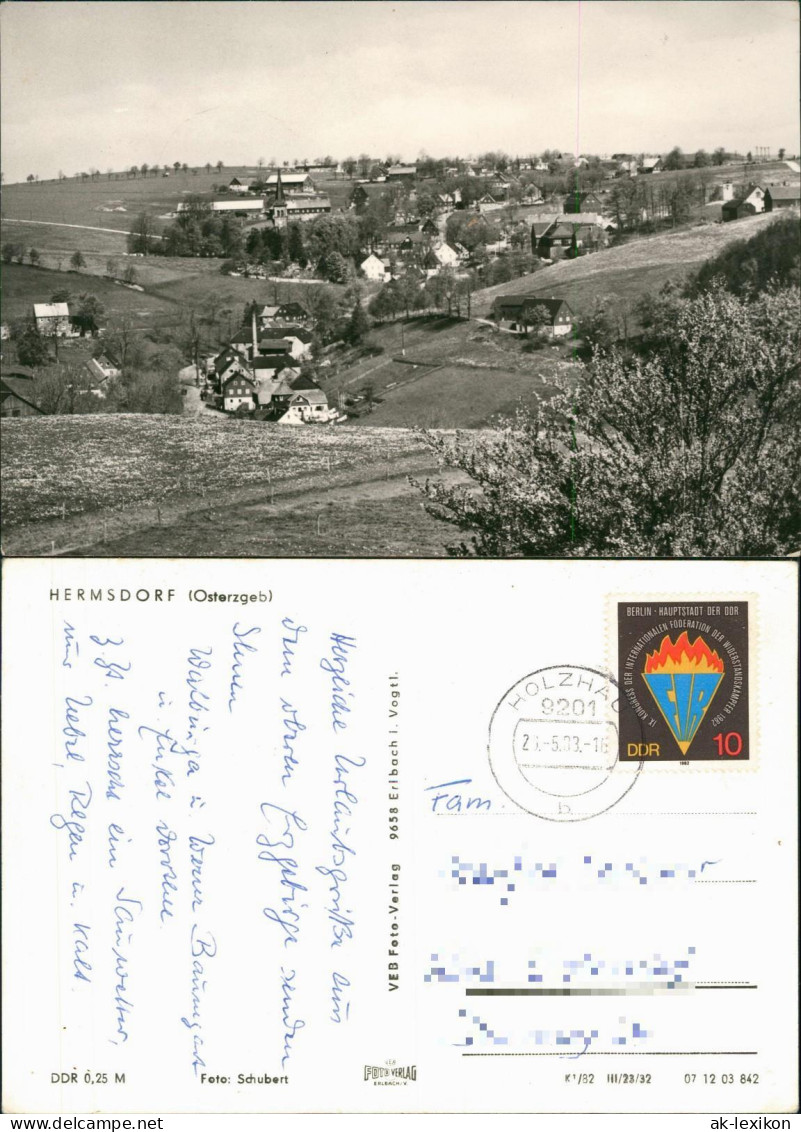 HERMSDORF (Osterzgeb)
Herzliche Urlaubsgrüße aus
dem oberen Erzgebirge senden
Ihnen
u. Werner Baumgart
u. Enkel
z. Zt. herrscht ein Sauwetter,
nur Nebel, Regen u. kalt.
VEB Foto-Verlag 9658 Erlbach i. Vogtl.
BERLIN · HAUPTSTADT DER DDR
IX. KONGRESS DER INTERNATIONALEN FÖDERATION DER WIDERSTANDSKÄMPFER 1982
FIR
DDR 10
1982
HOLZHAU
9201
-5.83.-16
b
Fam.
DDR 0,25 M
Foto: Schubert
VEB
FOTO VERLAG
ERLBACH/V.
K1/82 III/23/32 07 12 03 842
ak-lexikon.com